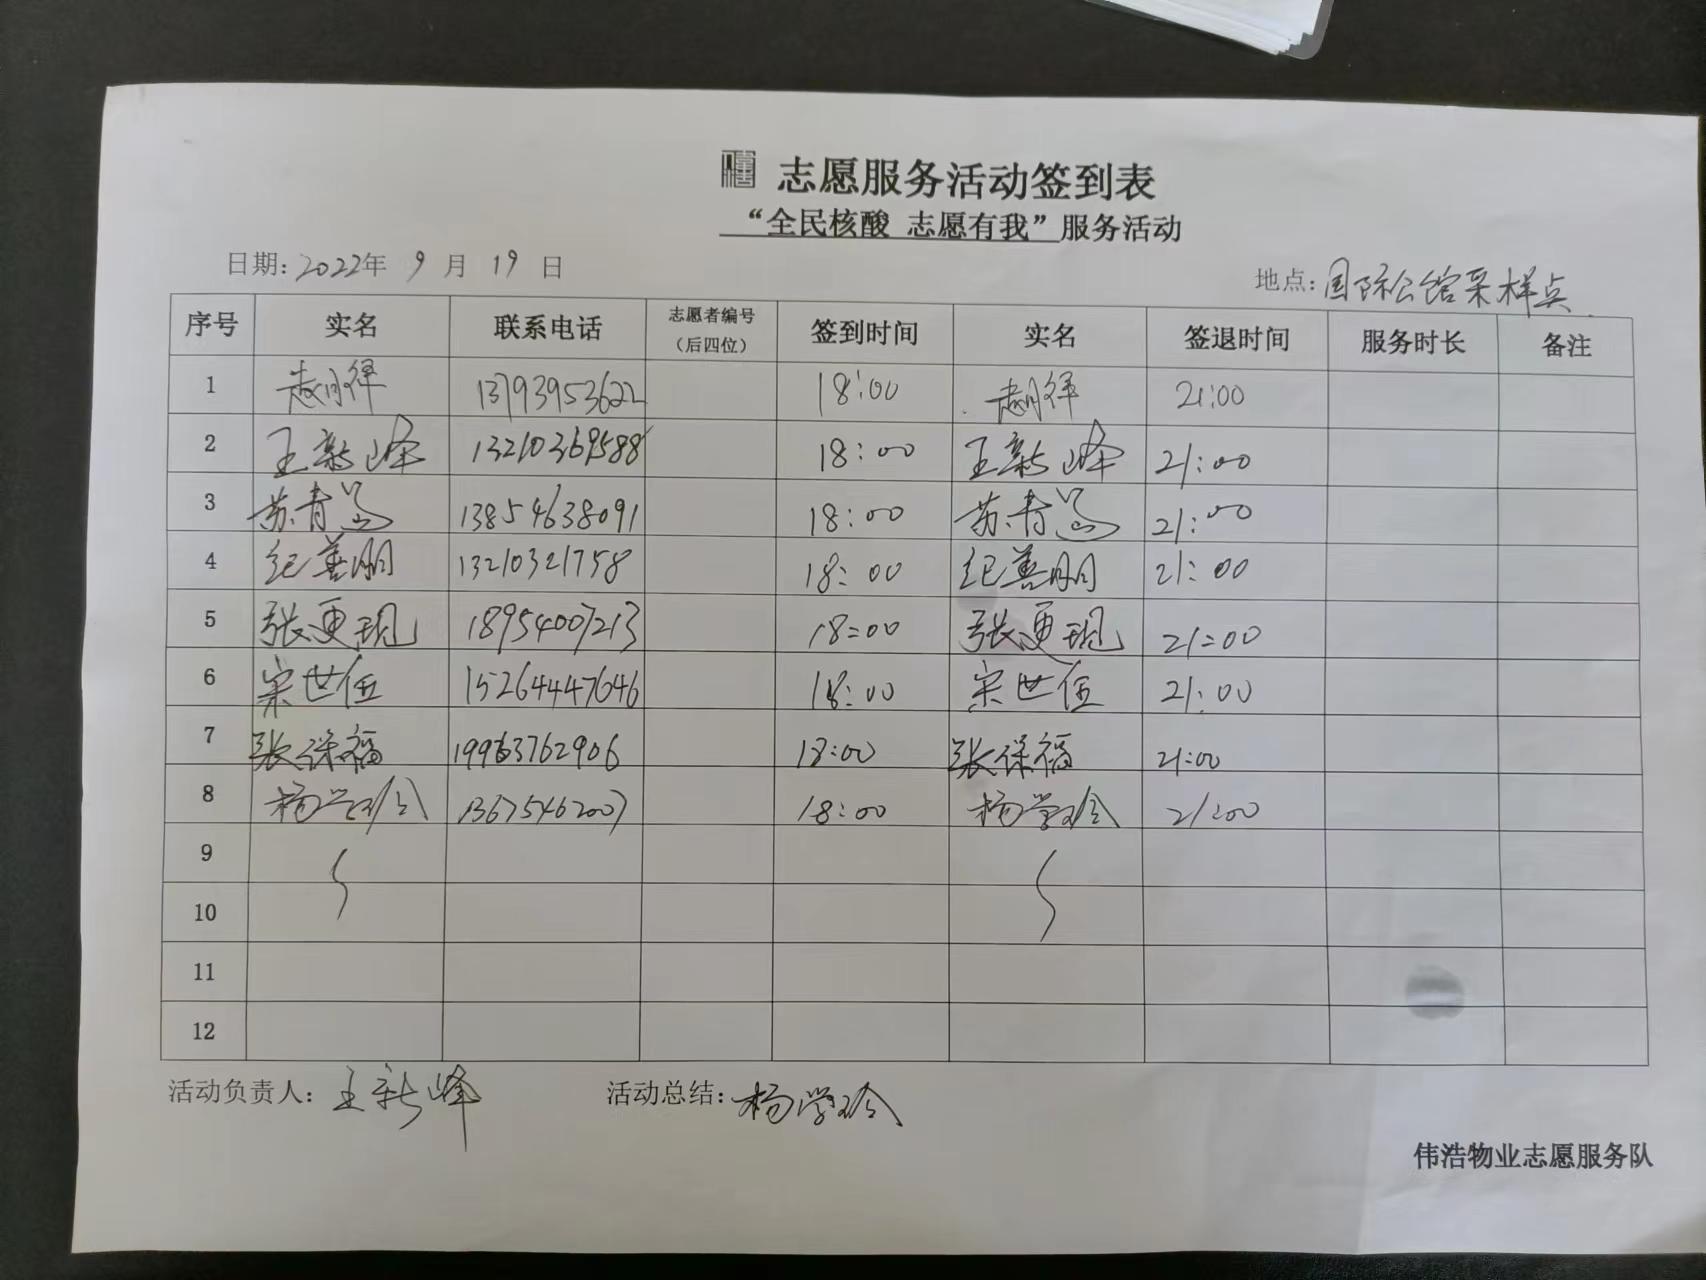 志愿服务活动签到表
“全民核酸 志愿有我”服务活动
日期:2022年 9 月 19 日 地点:国际公馆采样点
序号 实名 联系电话 志愿者编号（后四位） 签到时间 实名 签退时间 服务时长 备注
1 13793953622 18:00 21:00
2 王新峰 13210369588 18:00 王新峰 21:00
3 苏青 13854638091 18:00 苏青 21:00
4 纪善明 13210321758 18:00 纪善明 21:00
5 张更现 18954007213 18:00 张更现 21:00
6 宋世伍 15264447646 18:00 宋世伍 21:00
7 张保福 19963762906 18:00 张保福 21:00
8 杨学玲 13675462007 18:00 杨学玲 21:00
9
10
11
12
活动负责人:王新峰 活动总结:杨学玲
伟浩物业志愿服务队